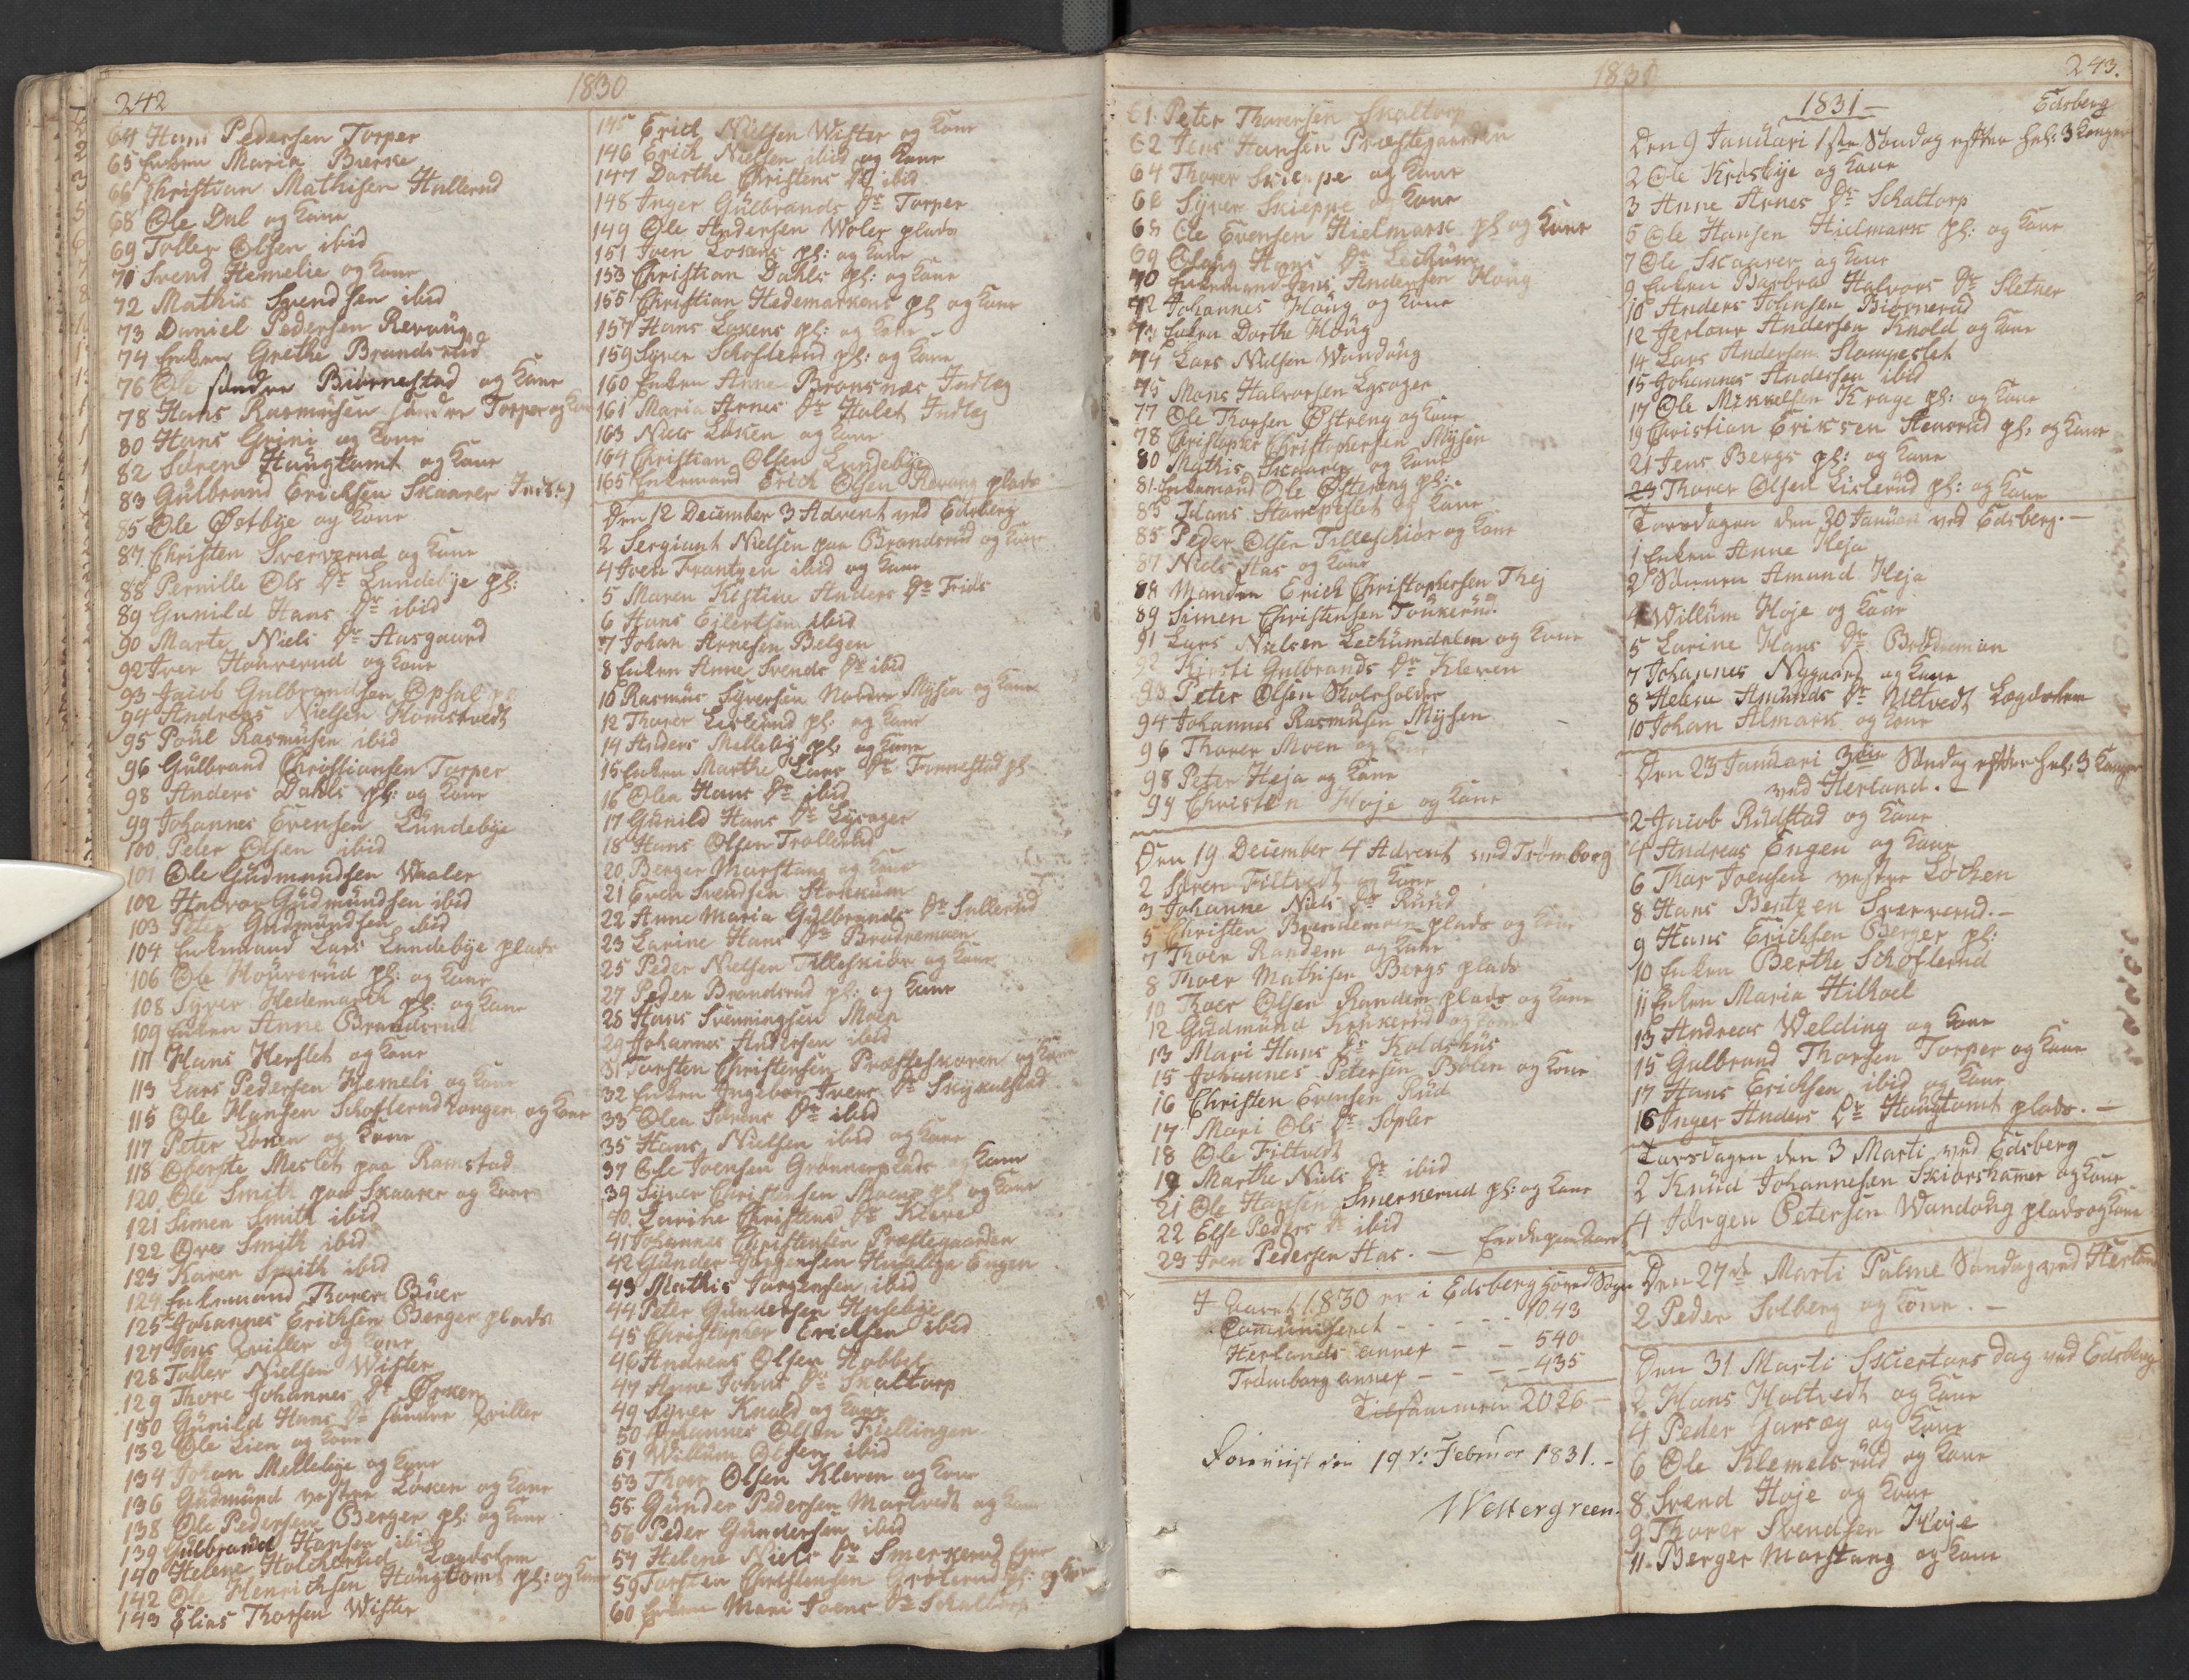 242
1830
64 Hans Pedersen Torper
65 Enken Maria Bierke
66 Christian Mathisen Hullerud
68 Ole Dal og Kone
69 Toller Olsen ibid
70 Svend Hemelie og Kone
72 Mathis Svendsen ibid
73 Daniel Pedersen Revoug
74 Enken Grethe Brandsrud
76 Ole søndre Biørnestad og Kone
78 Hans Rasmusen søndre Torper og Kone
80 Hans Grini og Kone
82 Søren Haugtomt og Kone
83 Gulbrand Erichsen Skaarer Indlæg
85 Ole Østbye og Kone
87 Christen Sververud og Kone
88 Pernille Ols Dr Lundebye pl:
89 Gunild Hans Dr ibid
90 Marte Niels Dr Aasgaard
92 Iver Houverud og Kone
93 Jacob Gulbrandsen Opsal
94 Andreas Nielsen Homstvedt
95 Poul Rasmusen ibid
96 Gulbrand Christiansen Torper
98 Anders Dahls pl: og Kone
99 Johannes Evensen Lundebye
100 Peter Olsen ibid
101 Ole Gudmundsen Waaler
102 Halvor Gudmundsen ibid
103 Peter Gudmundsen ibid
104 Enkemand Lars Lundebye plads
106 Ole Houverud pl: og Kone
108 Syver Hedemark pl: og Kone
109 Enken Anne Brandsrud
111 Hans Herslet og Kone
113 Lars Pedersen Hemeli og Kone
115 Ole Hansen Schofterud Kongen og Kone
117 Peter Løken og Kone
118 Oberste Meslet paa Ramstad
120 Ole Smith paa Skaarer og Kone
121 Simen Smith ibid
122 Ove Smith ibid
123 Karen Smith ibid
124 Enkemand Thorer Buer
125 Johannes Erichsen Berger plads
127 Jens Qviller og Kone
128 Toller Nielsen Wister
129 Thore Johannes Dr Ørken
130 Gunild Hans Dr søndre Qviller
132 Ole Lien og Kone
134 Johan Mellebye og Kone
136 Gudmund vestre Løken og Kone
138 Ole Pedersen Berger pl: og Kone
139 Gulbrand Hansen ibid
140 Helene Lægdslem
142 Ole Henrichsen Haugtomt pl: og Kone
143 Elias Thorsen Wister
145 Erich Nielsen Wister og Kone
146 Erich Nielsen ibid og Kone
147 Dorthe Christens Dr ibid
148 Inger Gulbrands Dr Torper
149 Ole Andersen Woler plads
151 Joen Lokens pl: og Kone
153 Christian Dahls pl: og Kone
155 Christian Hedemarkens pl og Kone
157 Hans Loxens pl: og Kone
159 Syver Schofterud pl: og Kone
160 Enken Anne Bronsnæs Indlæg
161 Maria Arnes Dr Holet Indlæg
163 Niels Løken og Kone
164 Christian Olsen Lundebye
165 Enkemand Erich Olsen Revoug plads
Den 12 December 3 Advent ved Edsberg
2 Sergiant Nielsen paa Brandsrud og Kone
4 Joen Frantzen ibid og Kone
5 Maren Kistine Anders Dr Friis
6 Hans Eilertsen ibid
7 Johan Arnesen Belgen
8 Enken Anne Svends Dr ibid
10 Rasmus Syversen Nordre Mysen og Kone
12 Thorer Lislerud pl: og Kone
14 Anders Mellebye pl: og Kone
15 Enken Marthe Lars Dr Finnestad pl
16 Olea Hans Dr ibid
17 Gunild Hans Dr Lysager
18 Hans Olsen Trollerud
20 Berger Marstang og Kone
21 Even Svendsen Stokkum
22 Anne Maria Gulbrands Dr Sullerud
23 Larine Hans Dr Brødremoen
25 Peder Nielsen Tilleskiør og Kone
27 Peder Brandsrud pl: og Kone
28 Hans Svenningsen Moen
29 Johannes Andersen ibid
31 Torsten Christensen Præsteskoven og Kone
32 Enken Ingebor Ivers Dr Skykulstad
33 Olea Sørens Dr ibid
35 Hans Nielsen ibid og Kone
37 Ole Joensen Grønnerplads og Kone
39 Syver Christensen Moens pl og Kone
40 Larine Christens Dr Kleve
41 Johannes Christensen Præstegaarden
42 Gunder Jørgensen Engen
43 Mathis Jørgensen ibid
44 Peter Gundersen Husebye
45 Christopher Erichsen ibid
46 Andreas Olsen Hobbel
47 Anne Johns Dr Skaltorp
49 Syver Knold og Kone
50 Johannes Olsen Kiellingen
51 Willum Olsen ibid
53 Thoer Olsen Kleven og Kone
55 Gunder Pedersen Martvedt og Kone
56 Peder Gundersen ibid
57 Helene Niels Dr Smerkerud
59 Torsten Christensen Grøterud pl: og Kone
60 Enken Mari Joens Dr Schaltorp
1830
243.
61 Peter Thorersen Skaltorp
62 Jens Hansen Præstegaarden
64 Thorer Skieppe og Kone
66 Syver Skieppe og Kone
68 Ole Evensen Hielmark pl og Kone
69 Olaug Hans Dr Lechum
70 Enkemand Jens Andersen Houg
72 Johannes Houg og Kone
73 Enken Dorthe Houg
74 Lars Nielsen Wandoug
75 Mons Halvorsen Lysager
77 Ole Thorsen Østreng og Kone
78 Christopher Christophersen Mysen
80 Mathis Skaarer og Kone
81 Enkemand Ole Østereng pl:
83 Hans Stampeslet og Kone
85 Peder Olsen Tilleschiør og Kone
87 Niels Aas og Kone
88 Manden Erich Christophersen Thej
89 Simen Christensen Tonkerud
91 Lars Nielsen Lechumdalen og Kone
92 Kirsti Gulbrands Dr Kleven
93 Peter Olsen Skoleholder
94 Johannes Rasmusen Mysen
96 Thorer Moen og Kone
98 Peter Heja og Kone
99 Christen Hoje og Kone
Den 19 December 4 Advent ved Trømborg
2 Søren Filtvedt og Kone
3 Johanne Niels Dr Rund
5 Christen Brandemoen plads og Kone
7 Thoer Randem og Kone
8 Thoer Mathisen Bergs plads
10 Thoer Olsen Randem plads og Kone
12 Gudmund Krükerud og Kone
13 Mari Hans Dr Koldshus
15 Johannes Petersen Bolen og Kone
16 Christen Evensen Rud
17 Mari Ols Dr Sopler
18 Ole Filtvedt
19 Marthe Niels Dr ibid
21 Ole Hansen Smerkerud pl: og Kone
22 Else Peders Dr ibid
23 Joen Pedersen Aas. —
I Aaret 1830 er i Edsberg Hoved Sogn
Communiseret - - - - - 1043
Herlands annex - - 540
Trømborg annex - - - 435
Tilsammen 2026 —
19de Februar 1831. -
Wettergreen.
1831 —
Edsberg
Den 9 Januari 1ste Søndag efter hel: 3 Konger
2 Ole Krosbye og Kone
3 Anne Arnes Dr Schaltorp
5 Ole Hansen Hielmark pl: og Kone
7 Ole Skaarer og Kone
9 Enken Barbra Halvors Dr Sletner
10 Anders Johnsen Biørnerud
12 Andersen Knold og Kone
14 Lars Andersen Stampeslet
15 Johannes Andersen ibid
17 Ole Mikkelsen Krage pl: og Kone
19 Christian Eriksen Stensrud pl: og Kone
21 Jens Bergs pl: og Kone
23 Thorer Olsen Lislerud pl: og Kone
Torsdagen den 20 Januari ved Edsberg. —
1 Enken Anne Heja
2 Sønnen Amund Heja
4 Willum Hoje og Kone
5 Larine Hans Dr Brødremoen
7 Johannes Nygaard og Kone
8 Helene Amunds Dr Ultvedt Lægdslem
10 Johan Almark og Kone
Den 23 Januari 3die Søndag efter hel: 3 Konger
ved Herland. —
2 Jacob Rudstad og Kone
4 Andreas Engen og Kone
6 Thor Joensen vestre Løchen
8 Hans Bentzen Sververud. —
9 Hans Erichsen Berger pl:
10 Enken Berthe Schofterud
11 Enken Maria Hilkoel
13 Andreas Welding og Kone
15 Gulbrand Thorsen Torper og Kone
17 Hans Erichsen ibid og Kone
16 Inger Anders Dr Haugtomt plads. —
Torsdagen den 3 Marti ved Edsberg
2 Knud Johannesen Skiørshamer og Kone
4 Jørgen Petersen Wandoug plads og Kone
Den 27de Marti Palme Søndag ved Herland
2 Peder Solberg og Kone. —
Den 31 Marti Skiertorsdag ved Edsberg
2 Hans Holtvedt og Kone
4 Peder Garsæg og Kone
6 Ole Klemetsrud og Kone
8 Svend Hoje og Kone
9 Thorer Svendsen Hoje
11 Berger Marstang og Kone